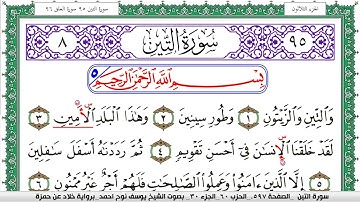 سورة التين ٩٥ سورة العلق ٩٦
الجزء الثلاثون
٩٥ سُورَةُ التِّينِ ٨
بِسْمِ اللَّهِ الرَّحْمَٰنِ الرَّحِيمِ ٥
وَالتِّينِ وَالزَّيْتُونِ ١ وَطُورِ سِينِينَ ٢ وَهَٰذَا الْبَلَدِ الْأَمِينِ ٣
لَقَدْ خَلَقْنَا الْإِنسَٰنَ فِي أَحْسَنِ تَقْوِيمٍ ٤ ثُمَّ رَدَدْنَٰهُ أَسْفَلَ سَٰفِلِينَ
٥ إِلَّا الَّذِينَ ءَامَنُوا وَعَمِلُوا الصَّٰلِحَٰتِ فَلَهُمْ أَجْرٌ غَيْرُ مَمْنُونٍ ٦
سورة التين الصفحة ٥٩٧ الحزب ٦٠ الجزء ٣٠ بصوت الشيخ يوسف نوح أحمد برواية خلاد عن حمزة